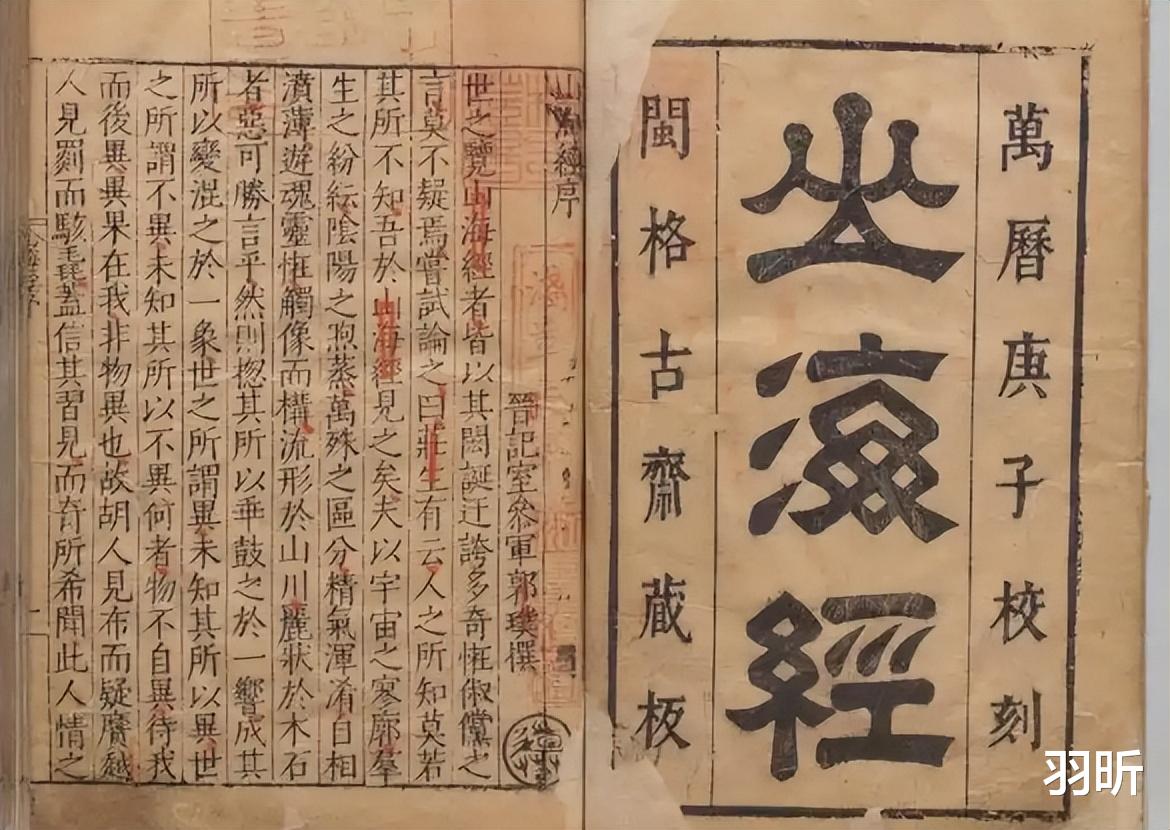 萬曆庚子校刻
山海經
閩格古齋藏板
山海經序
晉記室參軍郭璞撰
世之覽山海經者皆以其閎誕迂誇多奇怪俶儻之
言莫不疑焉嘗試論之曰莊生有云人之所知莫若
其所不知吾於山海經見之矣夫以宇宙之寥廓羣
生之紛紜陰陽之煦蒸萬殊之區分精氣渾淆自相
濆薄遊魂靈怪觸像而構流形於山川麗狀於木石
者惡可勝言乎然則揔其所以乖鼓之於一響成其
所以變混之於一象世之所謂異未知其所以異世
之所謂不異未知其所以不異何者物不自異待我
而後異異果在我非物異也故胡人見布而疑黂越
人見罽而駭毳蓋信其習見而奇所希聞此人情之
羽昕